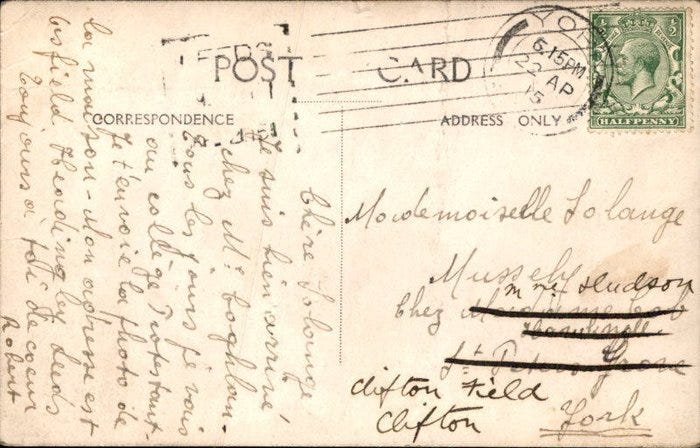 POST CARD
CORRESPONDENCE
ADDRESS ONLY
YORK
5.15 PM
22 AP
15
½ ½
HALFPENNY
Chère Solange,
Je suis bien arrivé
chez Mr Coghlan.
Tous les jours je vais
au collège Protestant.
Je t'envoie la photo de
la maison - Mon adresse est
field Headingley Leeds
Toujours à toi de coeur
Robert
Mademoiselle Solange
Mussely
Chez Mme Hudson
St Peters Grove
Clifton Field
Clifton York